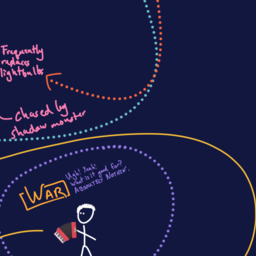 Frequently
replaces
lightbulbs
chased by
shadow monster
WAR
Ugh! Yeah!
What is it good for?
ABSOLUTELY NOTHIN'.